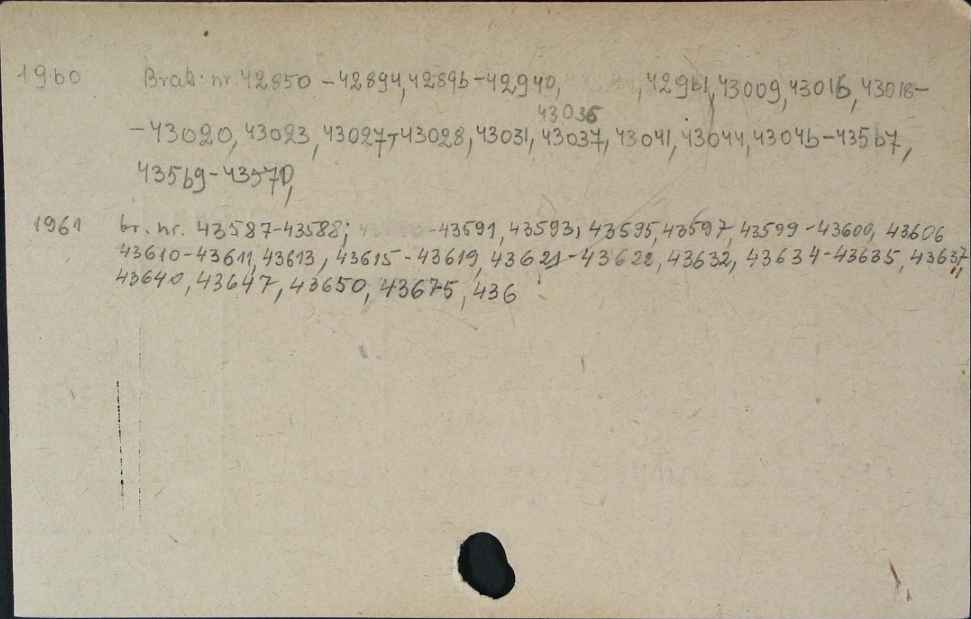 1960 Brak. nr. 42850 - 42894, 42896 - 42940, , 42961, 43009, 43016, 43018-
43036
- 43020, 43023, 43027, 43028, 43031, 43037, 43041, 43044, 43046 - 43567,
43569 - 43570,
1961 br. nr. 43587-43588; -43591, 43593, 43595, 43597, 43599 - 43600, 43606
43610-43611, 43613, 43615 - 43619, 43621 - 43622, 43632, 43634-43635, 43637,
43640, 43647, 43650, 43675, 436